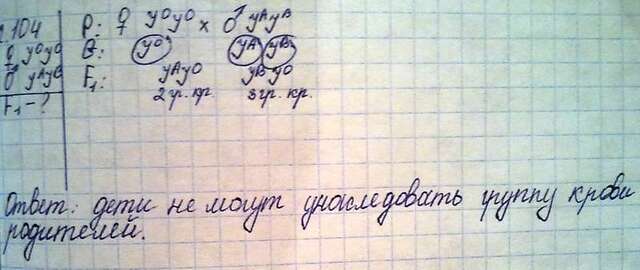 2.104
P: ♀ yOyO x ♂ yAyB
♀ yOyO
G: yO yA yB
♂ yAyB
F1: yAyO yByO
F1-?
2 гр. кр. 3 гр. кр.
Ответ: дети не могут унаследовать группу крови
родителей.